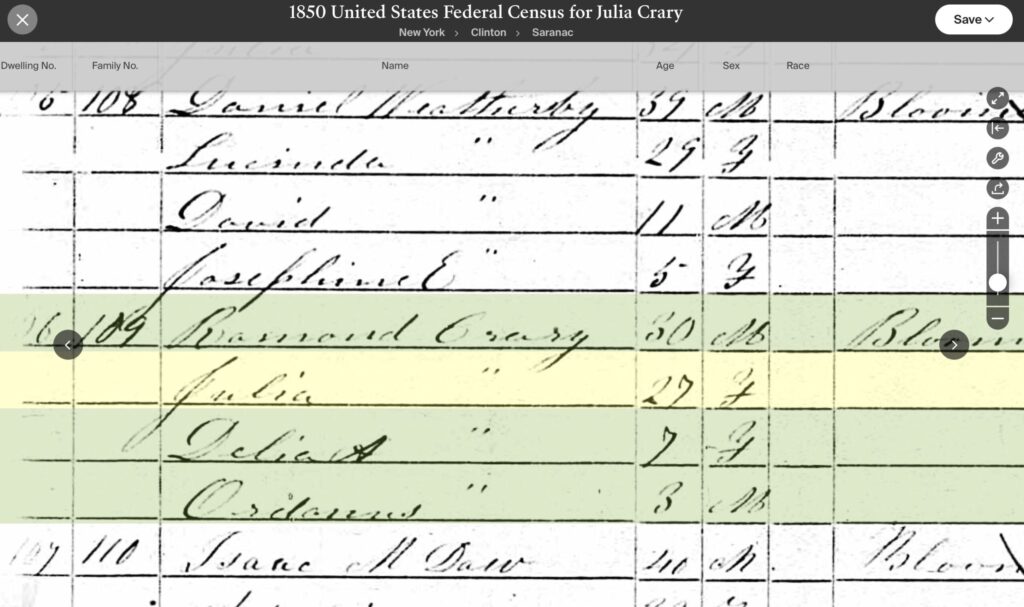 1850 United States Federal Census for Julia Crary
Save
New York > Clinton > Saranac
Dwelling No. Family No. Name Age Sex Race
108 Daniel Weatherby 39 M
Lucinda " 29 F
David " 11 M
Josephine E " 5 F
109 Ramond Crary 30 M
Julia " 27 F
Delia A " 7 F
Ordanus " 3 M
110 Isaac M Daw 40 M